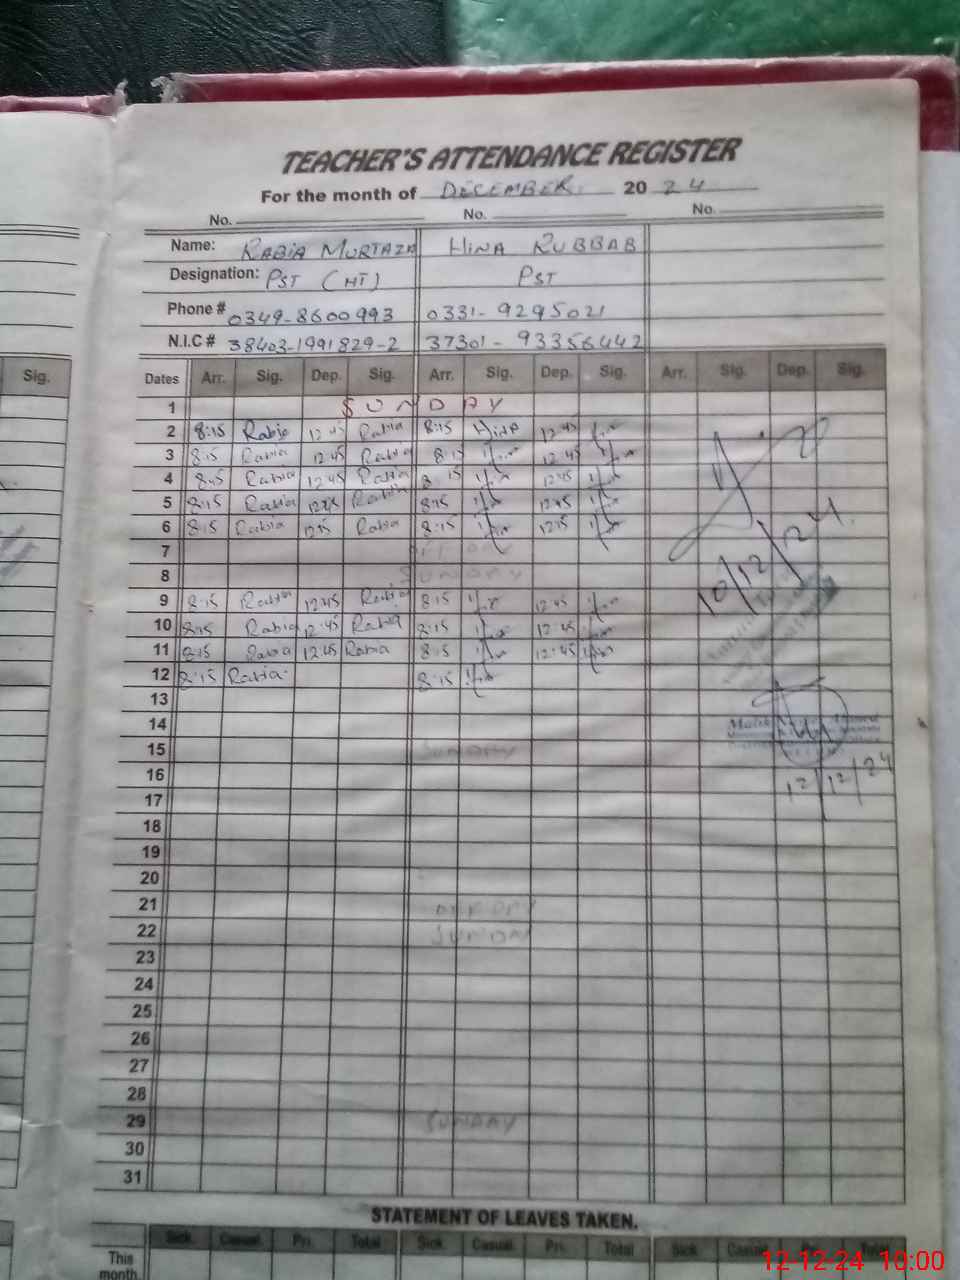 TEACHER'S ATTENDANCE REGISTER
For the month of DECEMBER 2024
No. No. No.
Name: RABIA MURTAZA HINA RUBBAB
Designation: PST (HT) PST
Phone # 0349-8600993 0331-9295021
N.I.C # 38403-1991829-2 37301-93356442
Sig. Dates Arr. Sig. Dep. Sig. Arr. Sig. Dep. Sig. Arr. Sig. Dep. Sig.
1 SUNDAY
2 8:15 Rabia 12:45 Rabia 8:15 Hina 12:45
3 8:15 Rabia 12:45 Rabia 8:15 12:45
4 8:15 Rabia 12:45 Rabia 8:15 12:45
5 8:15 Rabia 12:45 Rabia 8:15 12:45
6 8:15 Rabia 12:15 Rabia 8:15 12:15
7 OFF DAY
8 SUNDAY
9 8:15 Rabia 12:45 Rabia 8:15 12:45
10/12/24
10 8:15 Rabia 12:45 Rabia 8:15 12:45
11 8:15 Rabia 12:45 Rabia 8:15 12:45
12 8:15 Rabia 8:15
13
14
15 SUNDAY
16
12/12/24
17
18
19
20
21 OFF DAY
22 SUNDAY
23
24
25
26
27
28
29 SUNDAY
30
31
STATEMENT OF LEAVES TAKEN.
Sick Casual Pri. Total Sick Casual Pri. Total Sick Casual Total
This month
12-12-24 10:00